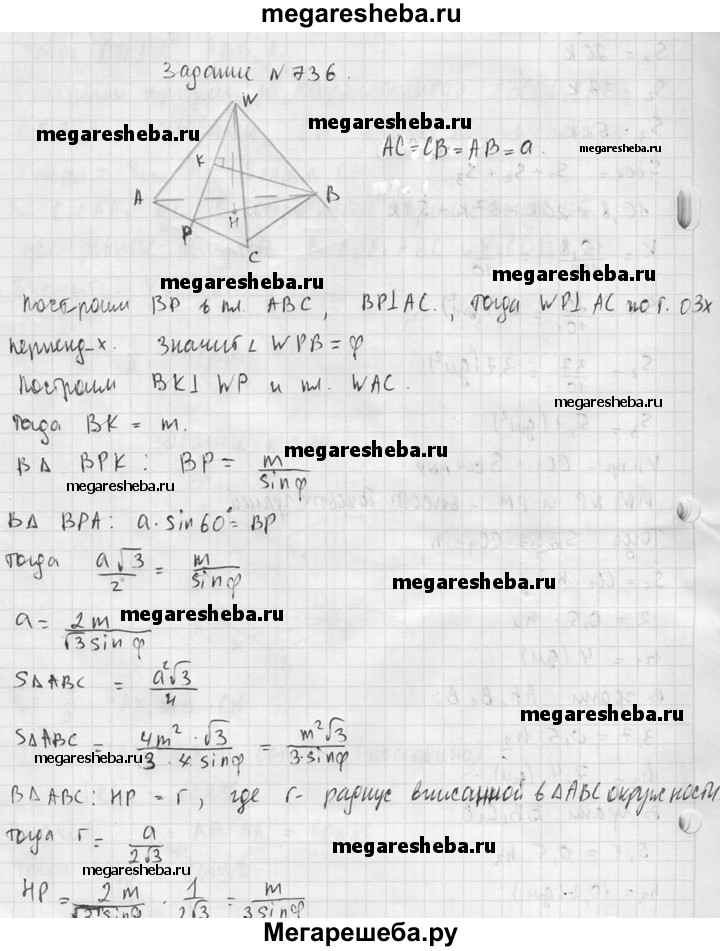 megaresheba.ru
Задание N 736.
W
megaresheba.ru
megaresheba.ru
AC=CB=AB=a.
megaresheba.ru
K
A
B
H
P
C
megaresheba.ru
megaresheba.ru
Построим BP в пл. ABC, BP⊥AC., тогда WP⊥AC по т. о 3х
перпенд-х. Значит ∠WPB=φ
Построим BK⊥WP и пл. WAC.
megaresheba.ru
Тогда BK = m.
megaresheba.ru
В Δ BPK: BP = m/sinφ
megaresheba.ru
В Δ BPA: a·sin60°=BP
Тогда a√3/2 = m/sinφ
megaresheba.ru
a = 2m/√3 sinφ
megaresheba.ru
SΔABC = a²√3/4
megaresheba.ru
SΔABC = 4m²·√3/3·4sinφ = m²√3/3·sinφ
megaresheba.ru
В ΔABC: HP = r, где r- радиус вписанной в ΔABC окружности
тогда r = a/2√3
megaresheba.ru
megaresheba.ru
HP = 2m/√3 sinφ · 1/2√3 = m/3sinφ
Мегарешеба.ру